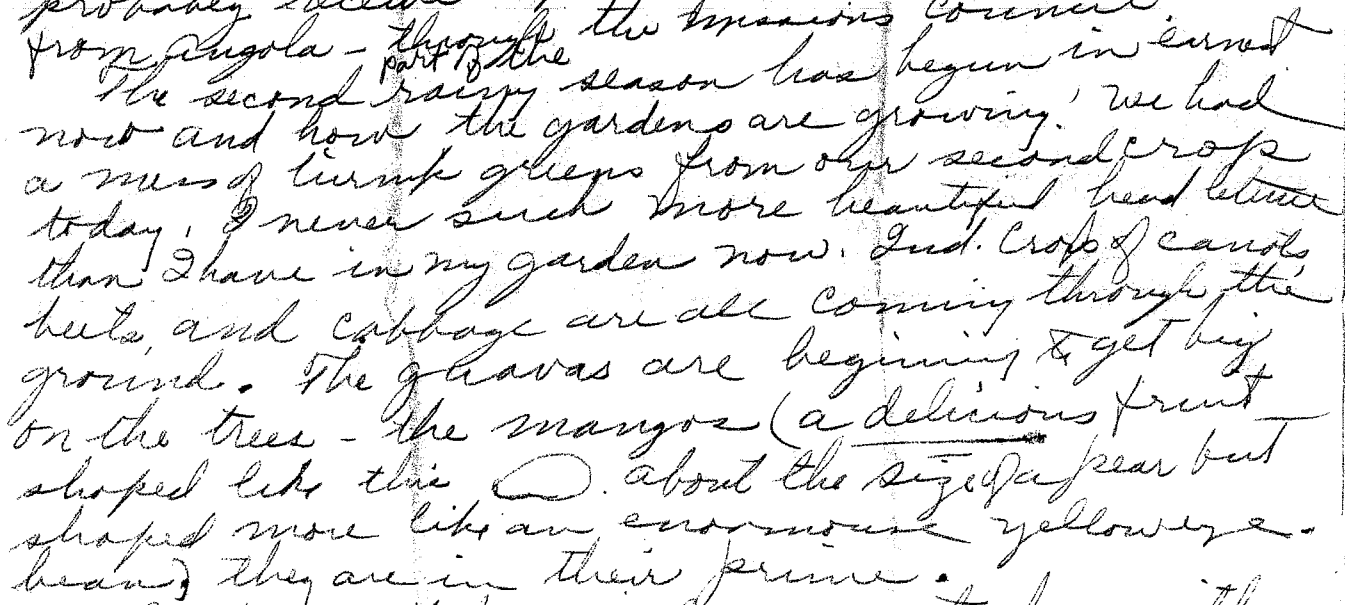 probably receive the Missions Council
from Angola - through
part of the
The second rainy season has begun in earnest
now and how the gardens are growing! We had
a mess of turnip greens from our second crop
today. I never such more beautiful head lettuce
than I have in my garden now. 2nd. Crops of carrots,
beets, and cabbage are all coming through the
ground. The guavas are begining to get big
on the trees - the mangos (a delicious fruit -
shaped like this . about the size of a pear but
shaped more like an enormouse yelloweye-
bean) they are in their prime.